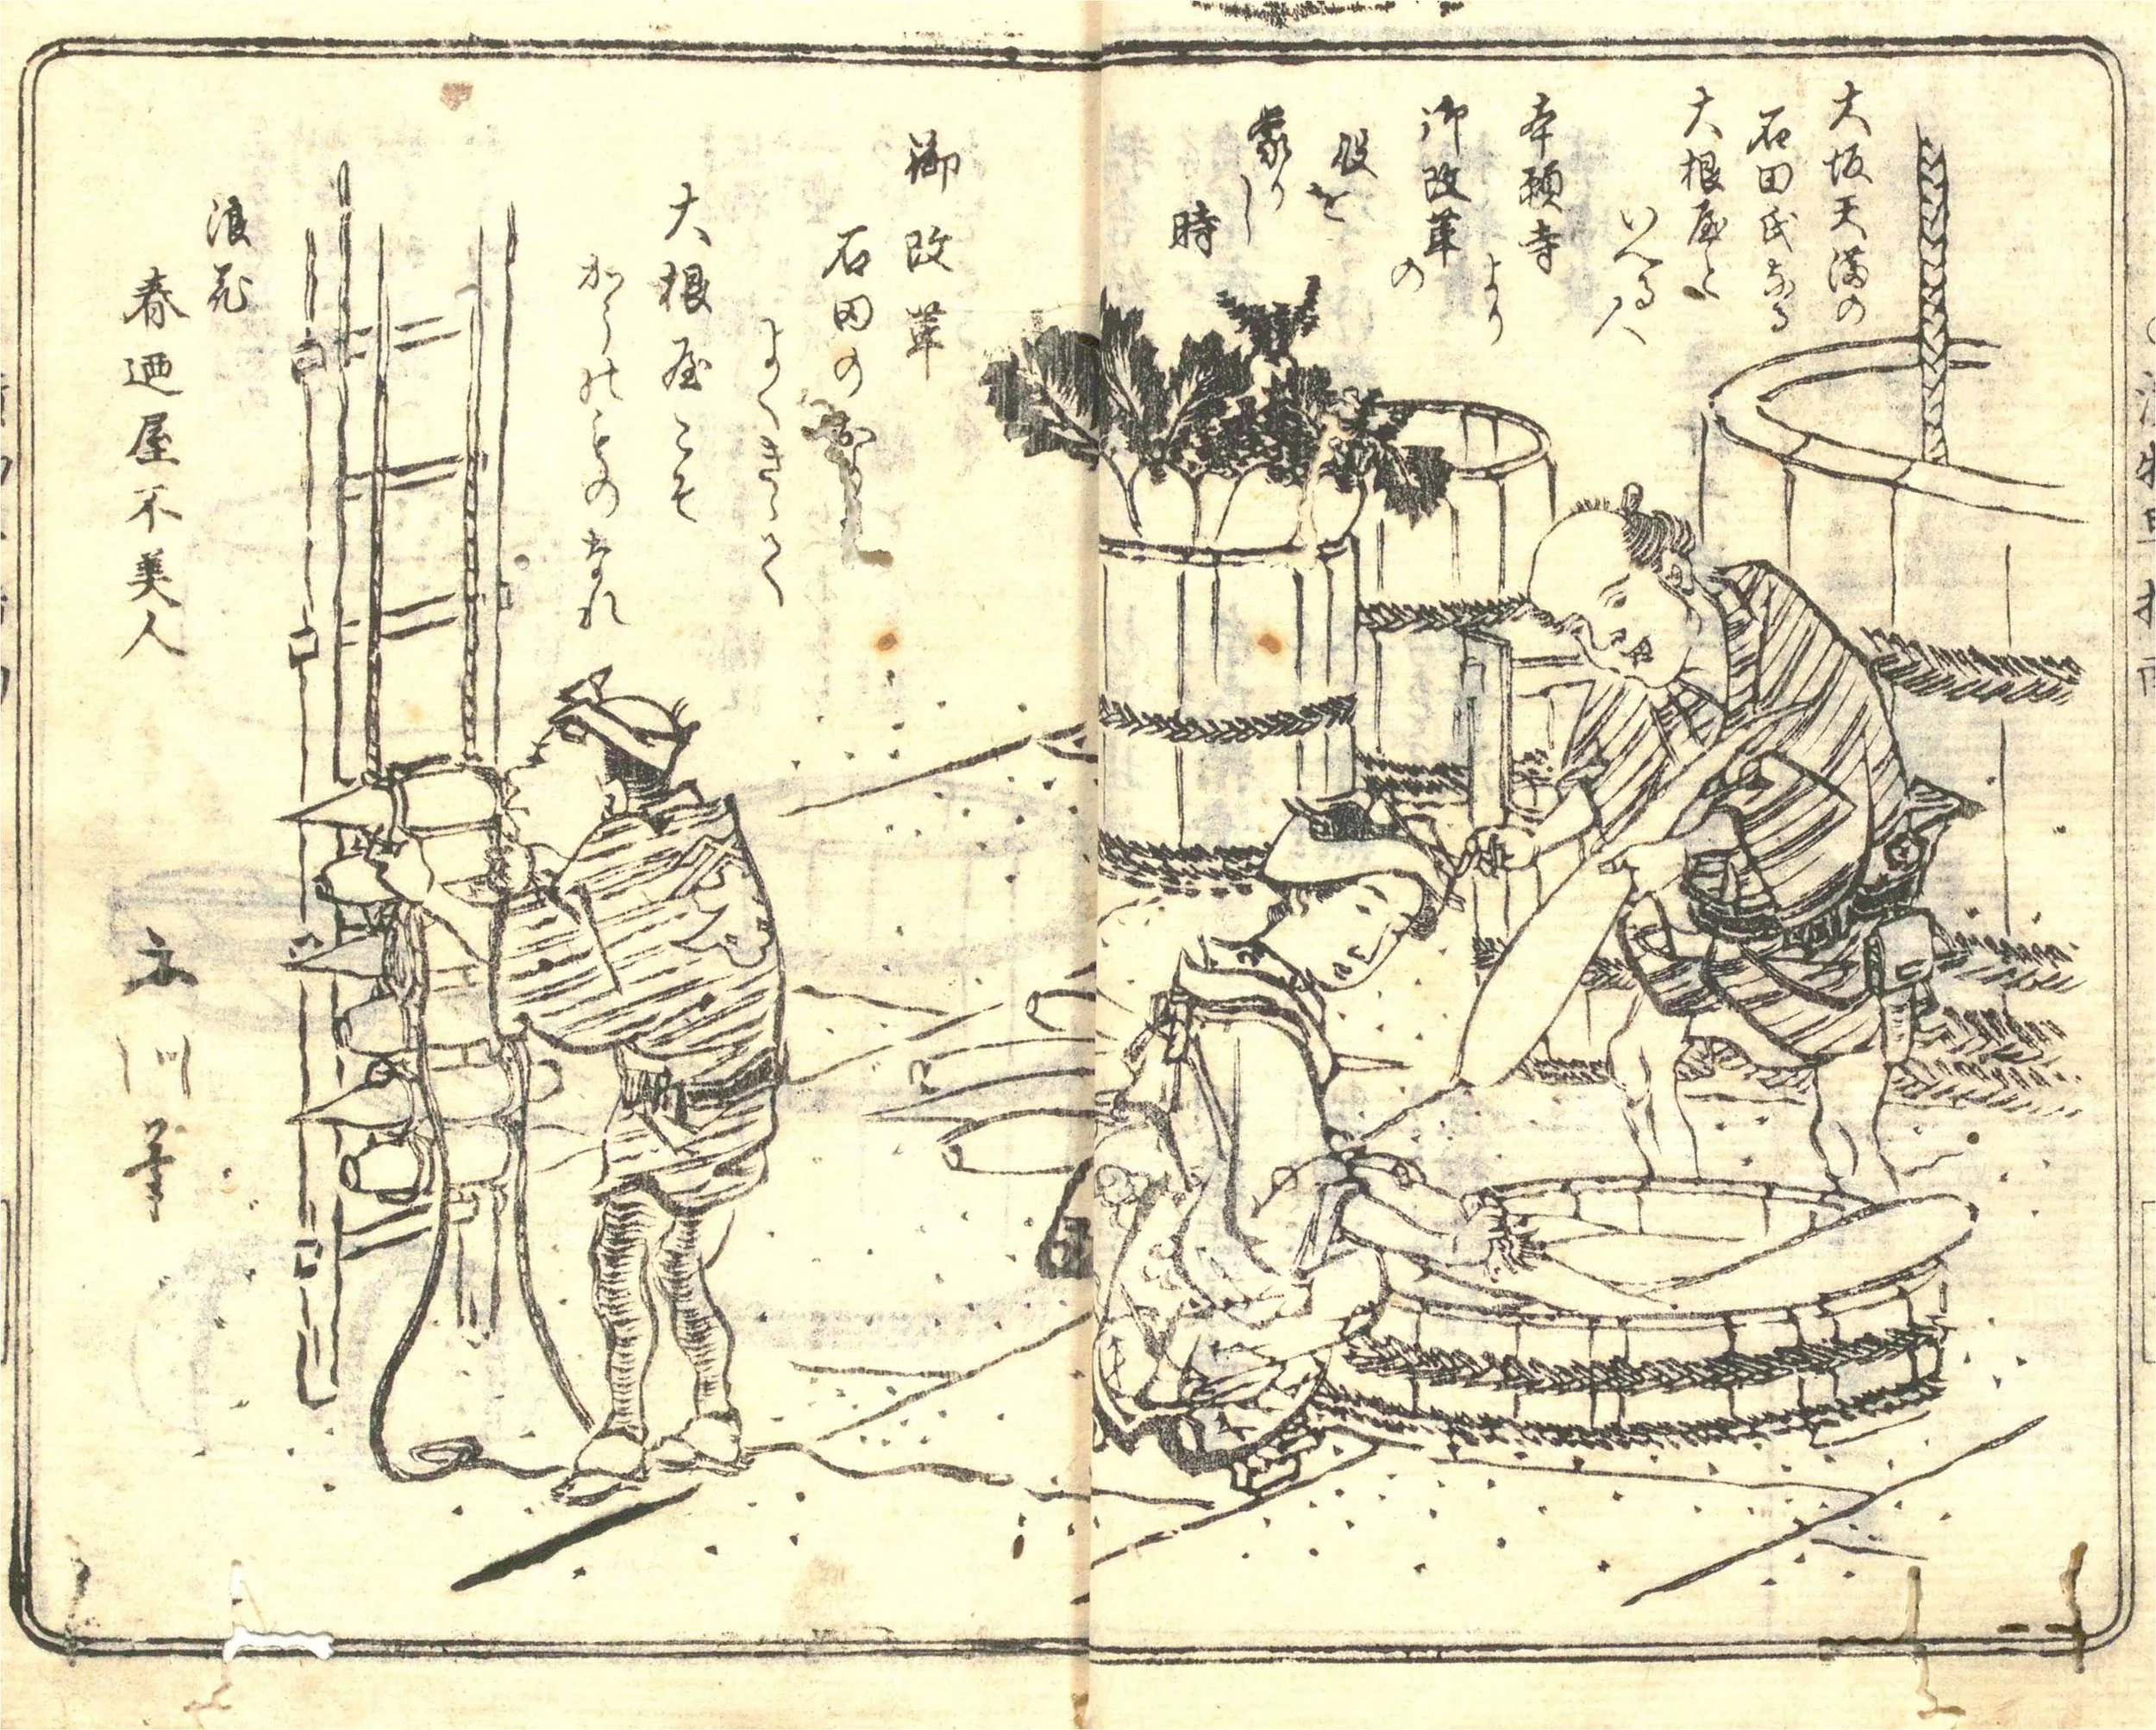 大坂天満の
石田氏なる
大根屋と
いへる人
本願寺
より
御改革
の
役を
蒙りし
時
御改革
石田の
よくきゝて
大根屋こそ
からものなれ
浪花
春廼屋不美人
川筆